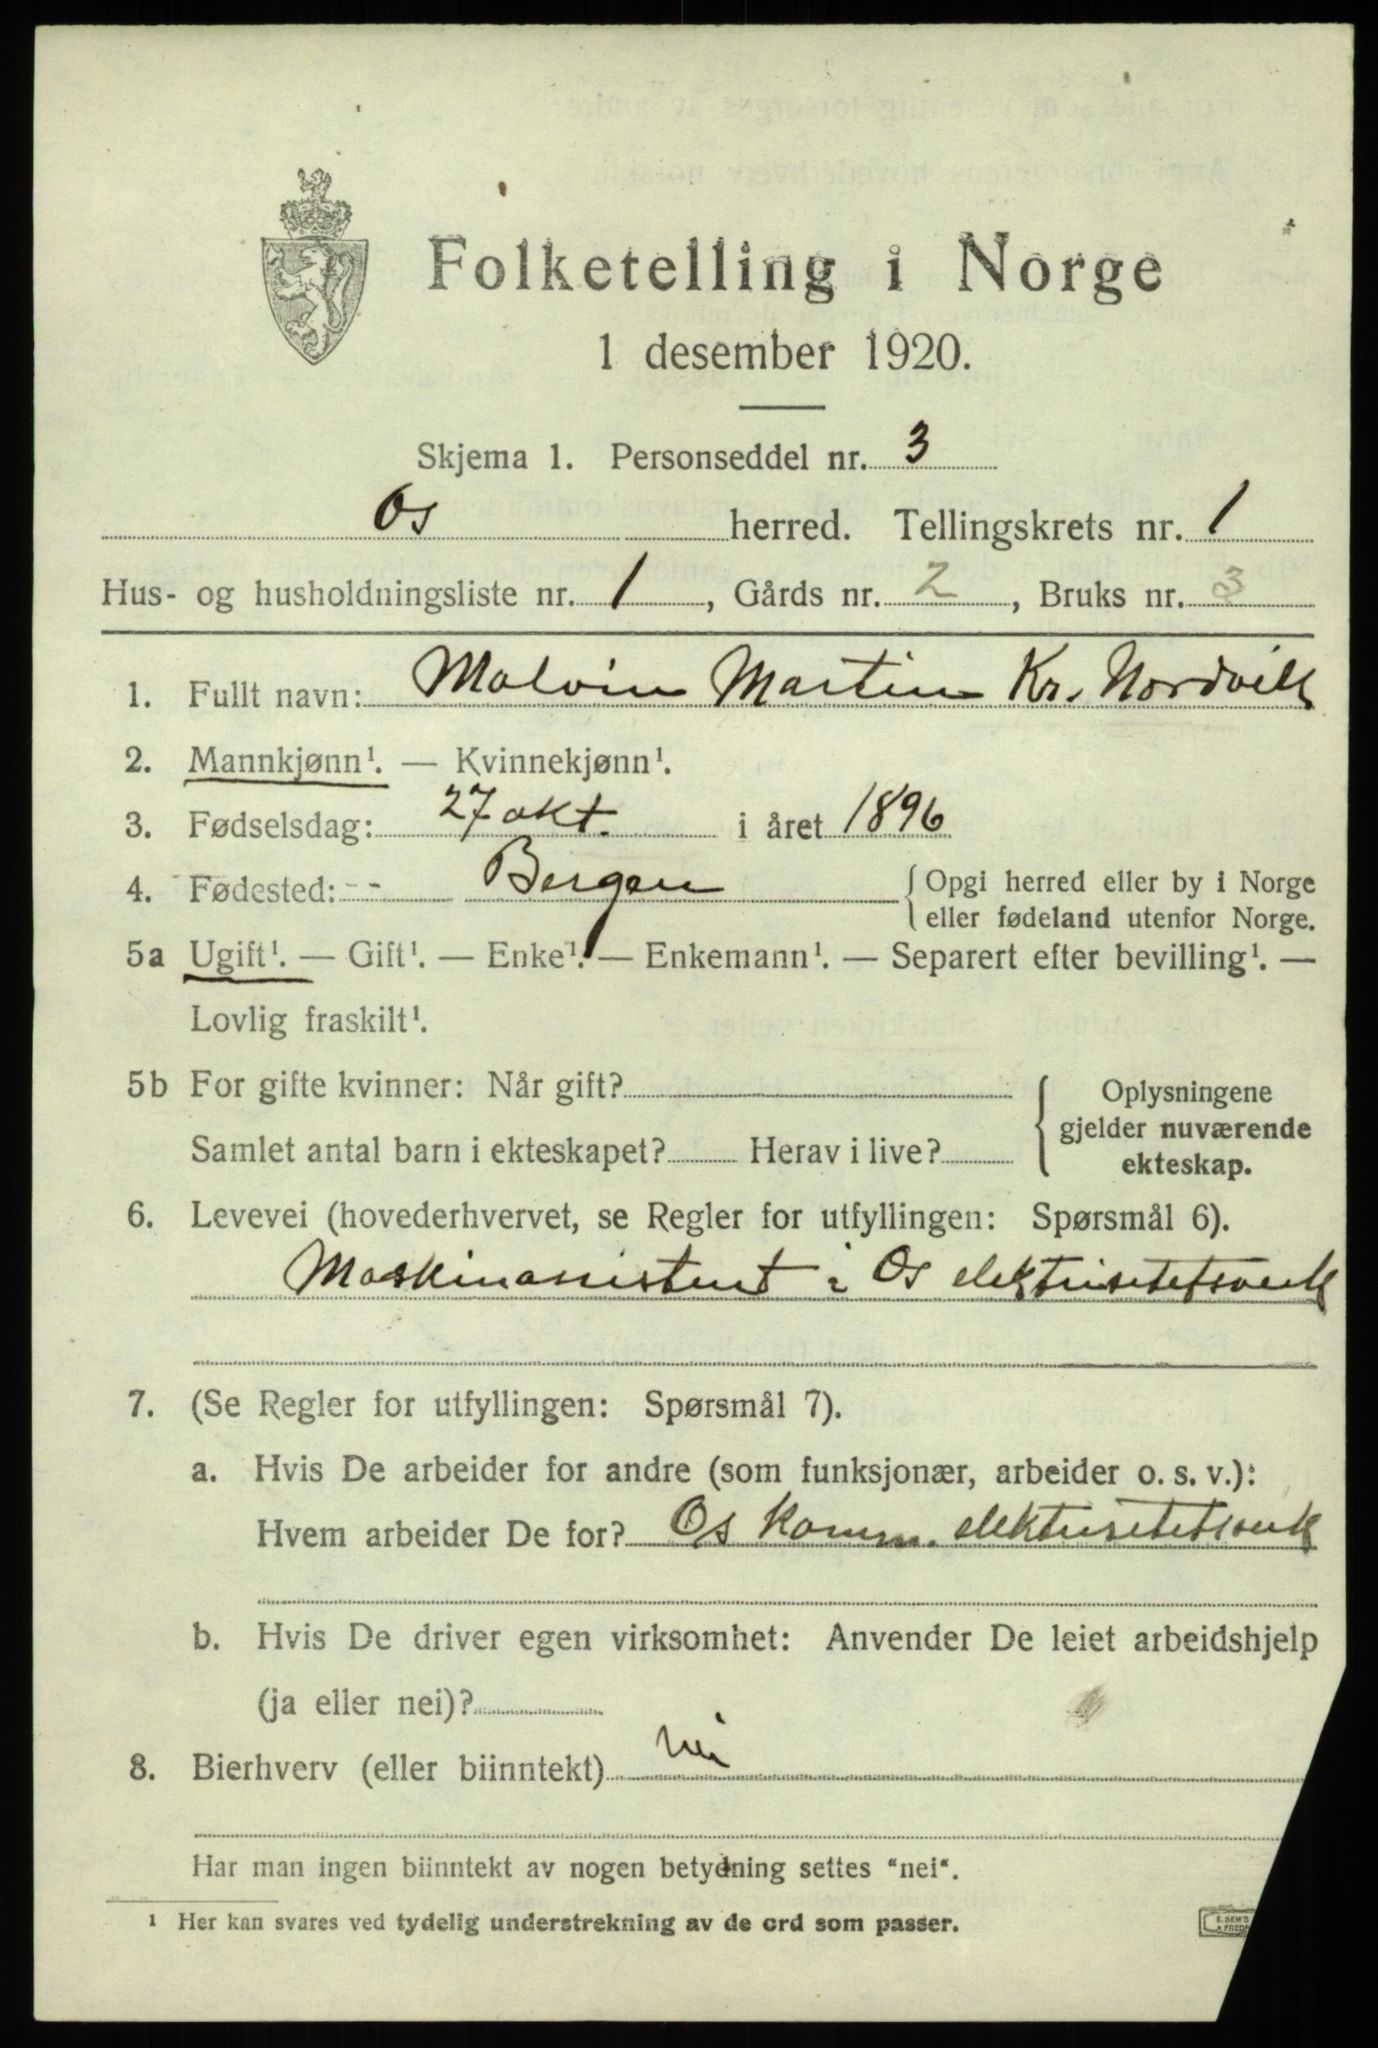 Folketelling i Norge
1 desember 1920.
Skjema 1. Personseddel nr. 3
Os herred. Tellingskrets nr. 1
Hus- og husholdningsliste nr. 1, Gårds nr. 2, Bruks nr. 3
1. Fullt navn: Malvin Martin Kr. Nordvik
2. Mannkjønn¹. — Kvinnekjønn¹.
3. Fødselsdag: 27 okt. i året 1896
4. Fødested: Bergen { Opgi herred eller by i Norge
eller fødeland utenfor Norge.
5a Ugift¹. — Gift¹. — Enke¹. — Enkemann¹. — Separert efter bevilling¹. —
Lovlig fraskilt¹.
5b For gifte kvinner: Når gift? { Oplysningene
gjelder nuværende
Samlet antal barn i ekteskapet? Herav i live? ekteskap.
6. Levevei (hovederhvervet, se Regler for utfyllingen: Spørsmål 6).
Maskinassistent i Os elektrisitetsverk
7. (Se Regler for utfyllingen: Spørsmål 7).
a. Hvis De arbeider for andre (som funksjonær, arbeider o. s. v.):
Hvem arbeider De for? Os Komm. elektrisitetsverk
b. Hvis De driver egen virksomhet: Anvender De leiet arbeidshjelp
(ja eller nei)?
8. Bierhverv (eller biinntekt) nei
Har man ingen biinntekt av nogen betydning settes "nei".
¹ Her kan svares ved tydelig understrekning av de ord som passer.
E. SEM'S